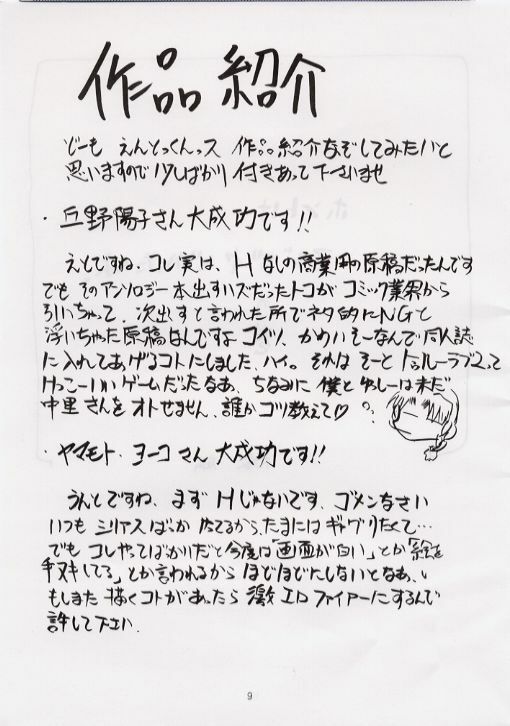 作品紹介
どーも えんとっくんっス 作品紹介なぞしてみたいと
思いますので少しばかり付きあって下さいませ
・丘野陽子さん大成功です!!
えとですね、コレ実は、Hなしの商業用の原稿だったんです
でも そのアンソロジー本出すハズだったトコが コミック業界から
引いちゃって、次出すと言われた所でネタ的にNGと
浮いちゃった原稿なんですよ コイツ、かわいそーなんで同人誌
に入れてあげるコトにしました、ハイ。それはそーと トゥルーラブ2って
けっこーいいゲームだたなあ、ちなみに 僕と ゆしーは未だ
中里さんをオトせません、誰かコツ教えて♡
・ヤマモト・ヨーコさん 大成功です!!
うんとですね、まず Hじゃないです、ゴメンなさい
いつも シリアスばっか だてるから、たまにはギャグりたくて…
でも コレやってばかりだと今度は「画面が白い」とか「絵を
手ヌキしてる」とか言われるから ほどほどにしないとなあ、
もしまた 描くコトがあったら 激エロファイアーにするんで
許して下さい.
9